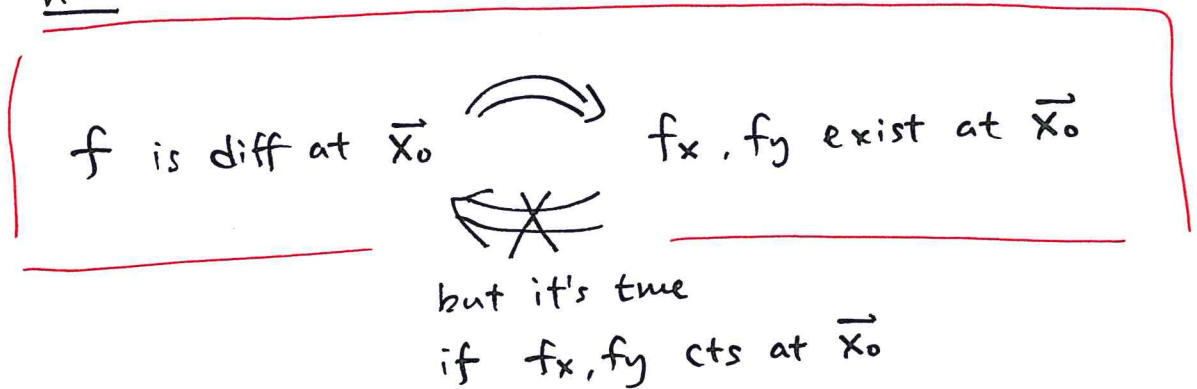 f is diff at x₀⃗ ⇒ fx, fy exist at x₀⃗
⇍
but it's true
if fx, fy cts at x₀⃗